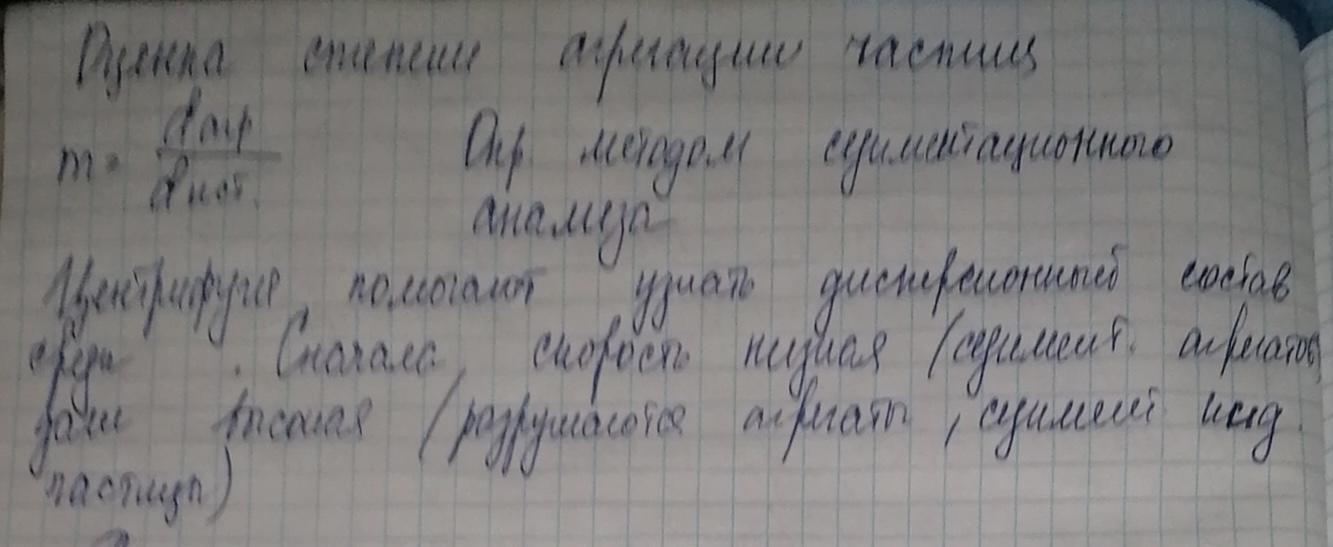 Оценка степени агрегации частиц
m = dагр / dист. Опр. методом седиментационного
анализа
Центрифуги помогают узнать дисперсионный состав
среды. Сначала скорость низкая (седимент. агрегатов,
далее высокая (разрушаются агрегаты, седимент инд.
частицы)